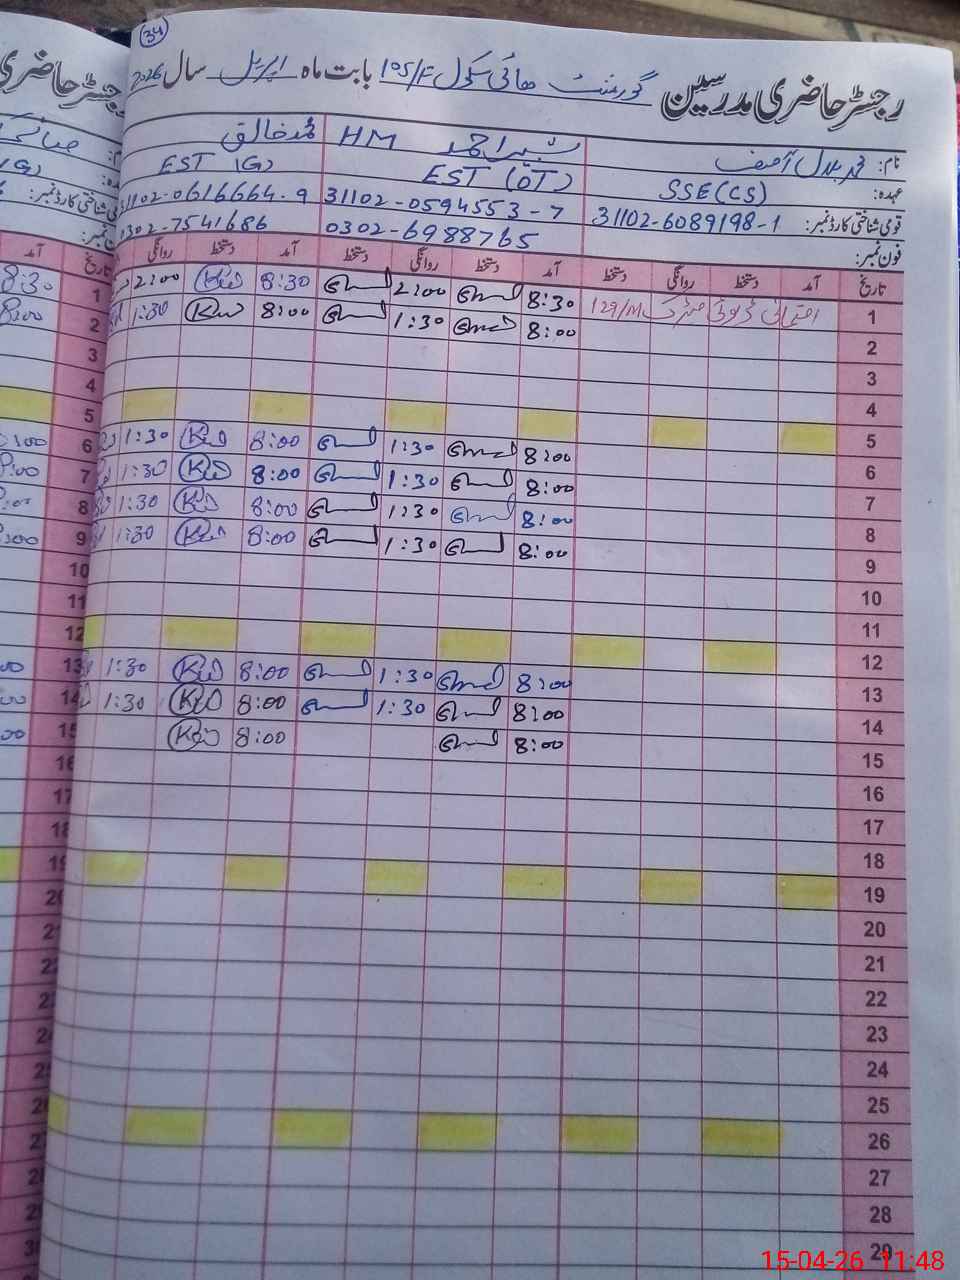 34
رجسٹر حاضری مدرسین گورنمنٹ ھائی سکول 105/F بابت ماہ اپریل سال 2026
نام: محمد بلال آصف
شبیر احمد HM
محمد خالق
عہدہ: SSE (CS)
EST (OT)
EST (G)
قومی شناختی کارڈ نمبر: 31102-6089198-1
31102-0594553-7
31102-0616664-9
فون نمبر:
0302-6988765
0302-7541686
تاریخ آمد دستخط روانگی دستخط آمد دستخط روانگی دستخط آمد دستخط روانگی
1 امتحانی ڈیوٹی میٹرک 129/M 8:30 2:00 8:30 2:00
2 8:00 1:30 8:00 1:30
3
4
5
6 8:00 1:30 8:00 1:30
7 8:00 1:30 8:00 1:30
8 8:00 1:30 8:00 1:30
9 8:00 1:30 8:00 1:30
10
11
12
13 8:00 1:30 8:00 1:30
14 8:00 1:30 8:00 1:30
15 8:00 8:00
16
17
18
19
20
21
22
23
24
25
26
27
28
29
15-04-26 11:48